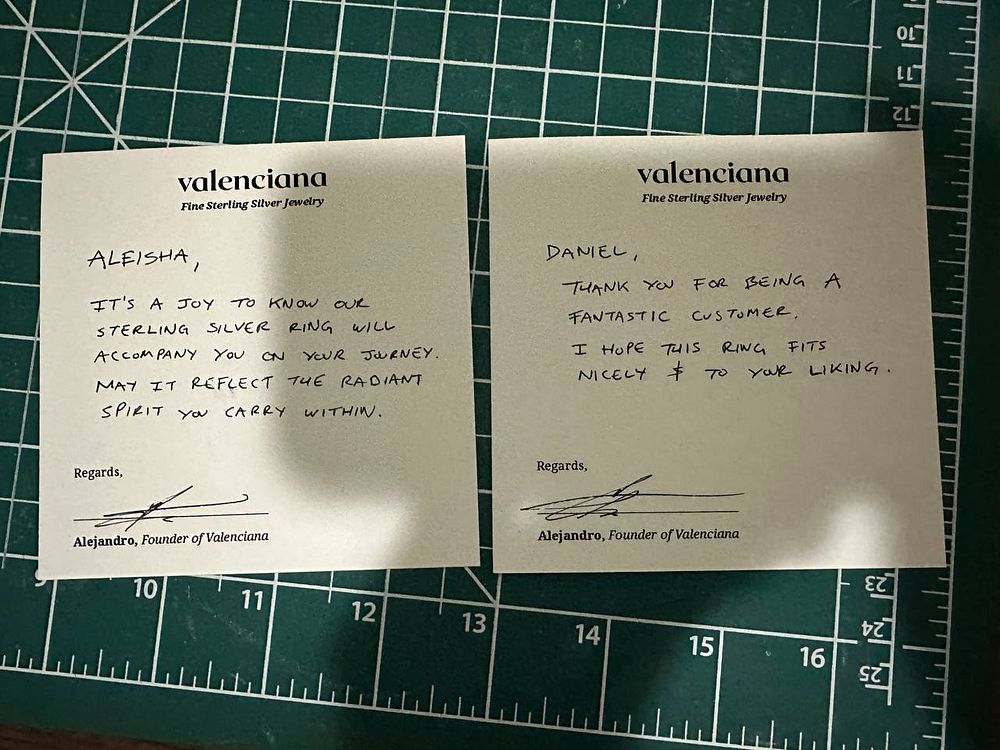 valenciana
Fine Sterling Silver Jewelry
ALEISHA,
IT'S A JOY TO KNOW OUR
STERLING SILVER RING WILL
ACCOMPANY YOU ON YOUR JOURNEY.
MAY IT REFLECT THE RADIANT
SPIRIT YOU CARRY WITHIN.
Regards,
Alejandro, Founder of Valenciana
valenciana
Fine Sterling Silver Jewelry
DANIEL,
THANK YOU FOR BEING A
FANTASTIC CUSTOMER.
I HOPE THIS RING FITS
NICELY & TO YOUR LIKING.
Regards,
Alejandro, Founder of Valenciana
10
11
12
9
10
11
12
13
14
15
16
23
24
25